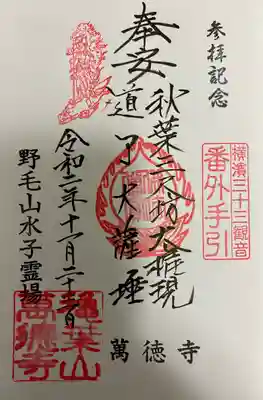 参拝記念
横濱三十三観音
番外手引
奉安
秋葉三尺坊大権現
道了大薩埵
萬徳寺
令和二年十一月二十日
野毛山水子霊場
葉山
萬徳寺